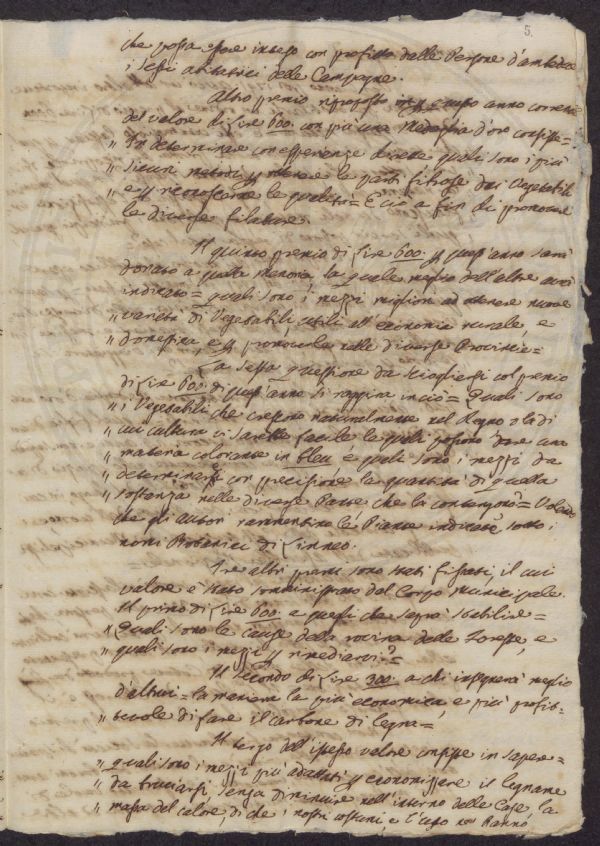 5.
che possa essere inteso con profitto dalle Persone d'ambedue
i sessi abitatrici delle Campagne.
Altro premio riproposto anno corrente
del valore di Lire 600. con più una Medaglia d'oro consiste=
„ In determinare con esperienze dirette quali sono i più
„ sicuri metodi p ottenere le parti filtrose dai Vegetabili
„ e p riconoscerne le qualità= E ciò a fin di promover
le diverse filature.
Il quinto premio di Lire 600. p quest'anno sarà
donato a quella Memoria, la quale meglio dell'altre avrà
indicato= quali sono i mezzi migliori ad ottenere nuove
„ varietà di Vegetabili utili all'economia rurale, e
„ domestica, e p provocarle nelle diverse Provincie=
La sesta questione da sciogliersi col premio
di Lire 600. di quest'anno si raggira in ciò= Quali sono
„ i Vegetabili che crescono naturalmente nel Regno o la di
cui cultura vi sarebbe facile le quali possono dare una
materia colorante in bleu e quali sono i mezzi da
„ determinare con precisione la quantità di quella
„ sostanza nelle diverse Parti che la contengono?=
che gli Autori rammentino le Piante indicate sotto i
nomi Botanici di Linneo.
Tre altri premi sono stati fissati, il cui
valore è stato somministrato dal Corpo Municipale
Il primo di Lire 600. a quegli che saprà stabilire=
„ Quali sono le cause della rovina delle Foreste, e
„ quali sono i mezzi p rimediarvi?=
Il secondo di Lire 300. a chi insegnerà meglio
d'altrui= la maniera la più economica, e più profit-
„ tevole di fare il carbone di legna=
Il terzo dell'istesso valore consiste in sapere=
„ quali sono i mezzi più adattati p economizzare il legname
„ da bruciarsi, senza diminuire nell'interno delle Case la
„ massa del calore, di che i nostri costumi, e l'uso hanno